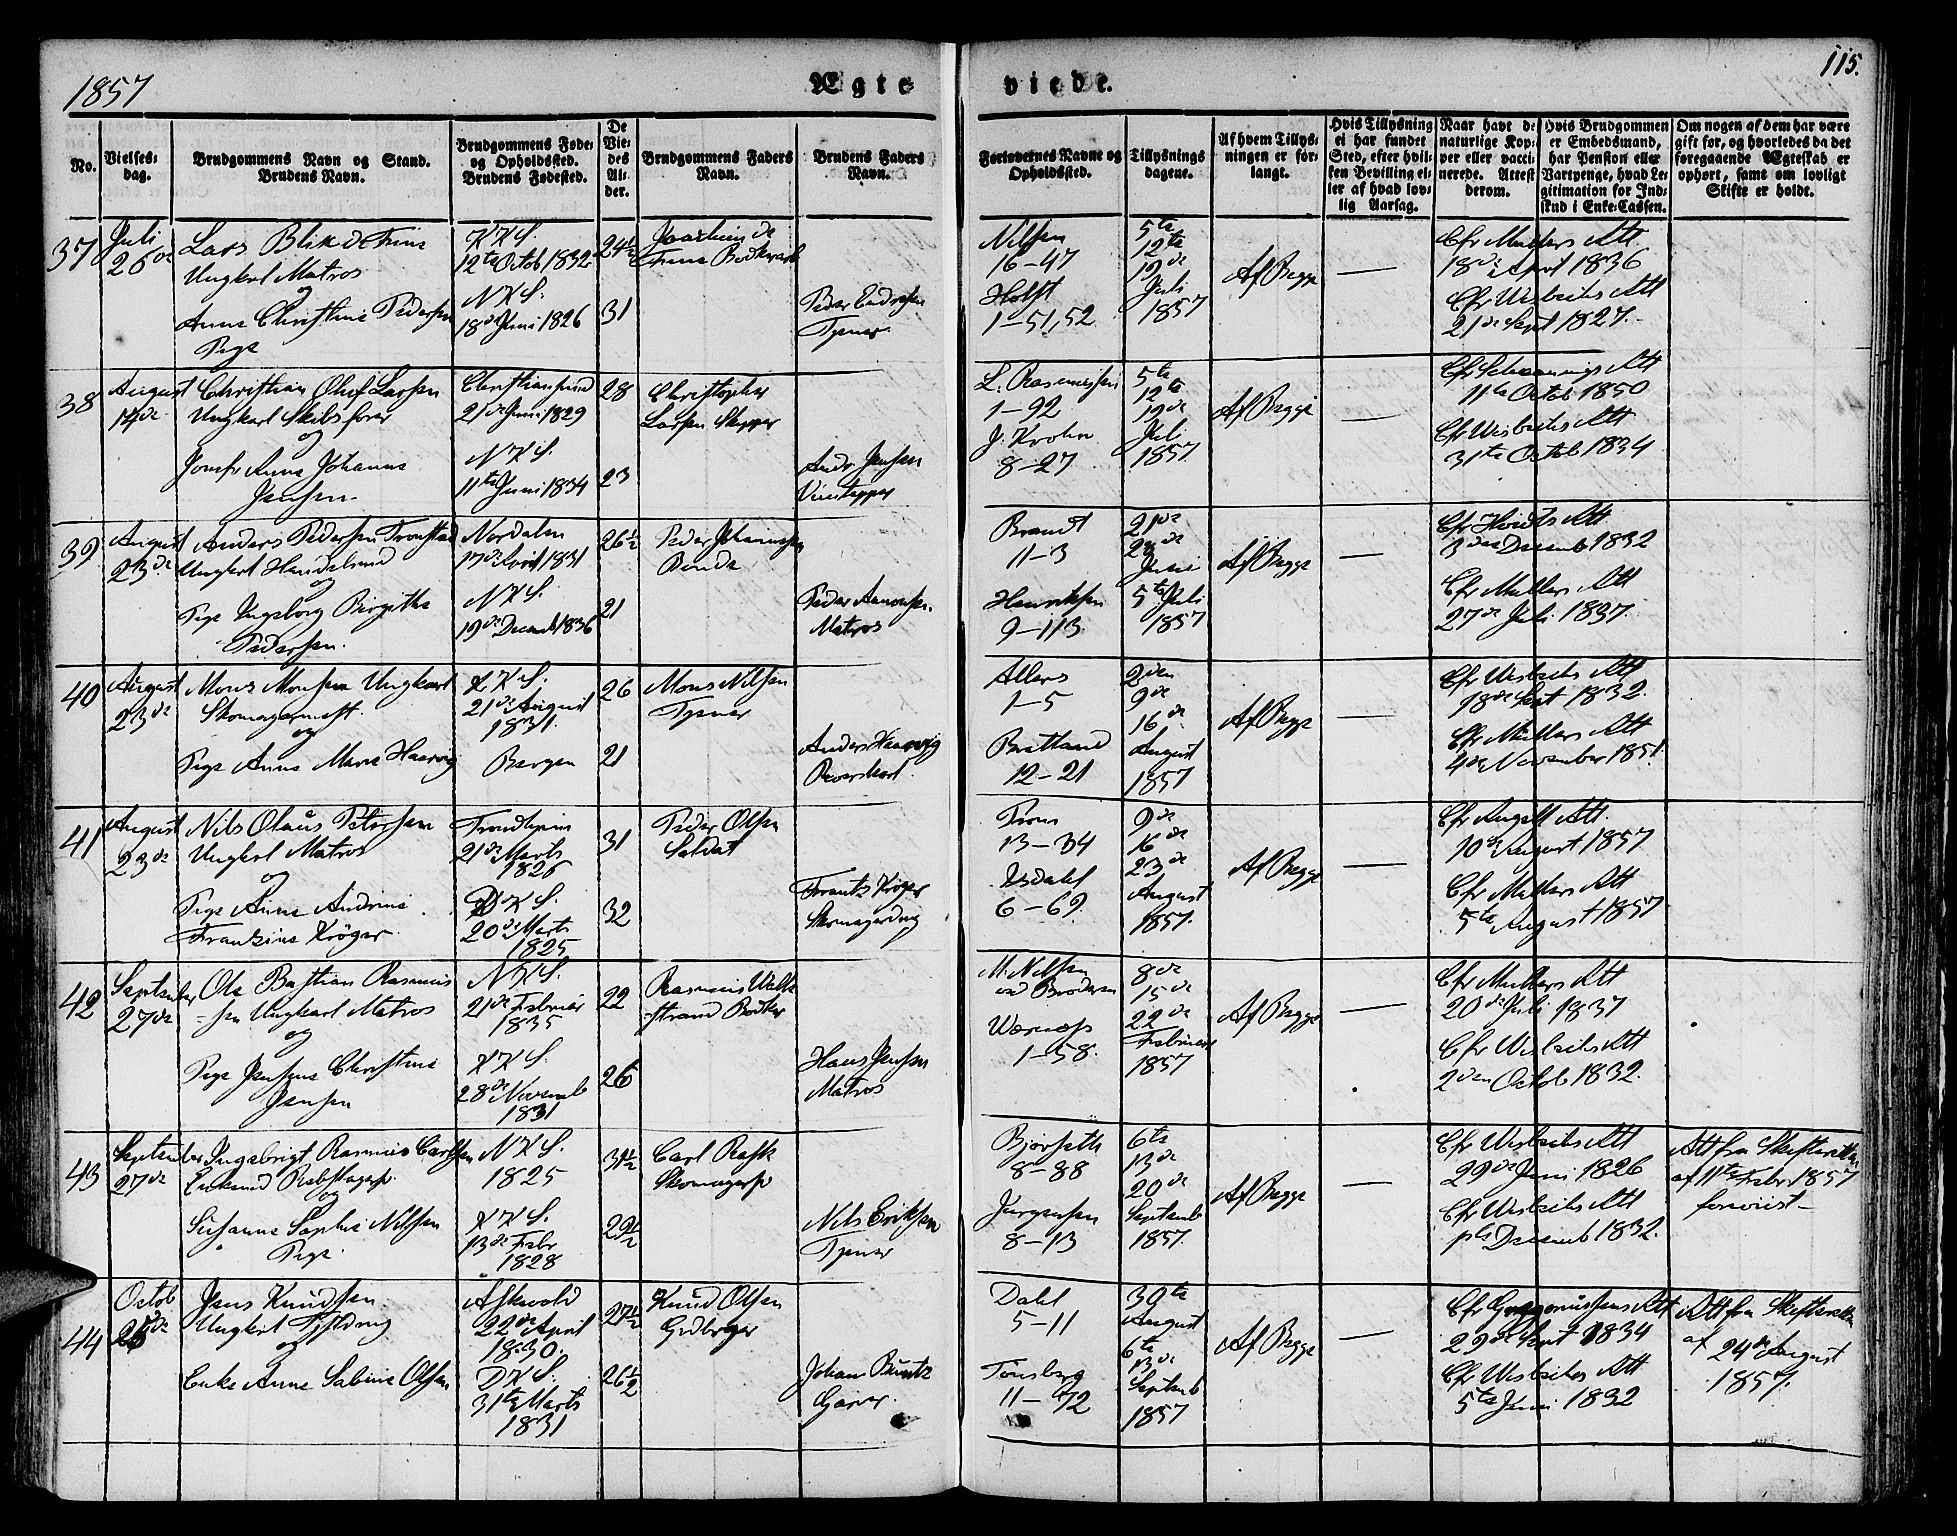 1857
Ægte
viede.
115.
No.
Vielses-
dag.
Brudgommens Navn og Stand.
Brudens Navn.
Brudgommens Føde-
og Opholdssted.
Brudens Fødested.
De
Vie-
des
Al-
der.
Brudgommens Faders
Navn.
Brudens Faders
Navn.
Forlovernes Navne og
Opholdssted.
Tillysnings
dagene.
Af hvem Tillys-
ningen er for-
langt.
Hvis Tillysning
ei har fundet
Sted, efter hvil-
ken Bevilling el-
ler af hvad lov-
lig Aarsag.
Naar havt de
naturlige Kop-
per eller vacci-
nerede. Attest
derom.
Hvis Brudgommen
er Embedsmand,
har Pension eller
Vartpenge, hvad Le-
gitimation for Ind-
skud i Enke-Cassen.
Om nogen af dem har være
gift før, og hvorledes da det
foregaaende Ægteskab er
ophørt, samt om lovligt
Skifte er holdt.
37
Juli
26de
Lars Blik de Fine
Ungkarl Matros
Anne Christine Pedersen
Pige
KKS.
12te Octob 1832
NKS.
18de Juni 1826
24½
31
Joachim de
Fine Bødkersv
Peder Endresen
Tjener
Nilsen
16-47
Holst
1-51,52
5te
12te
19de
Juli
1857
Af Begge
Cfr Mullers Att
18de April 1836
Cfr Wisbechs Att
21de Sept 1827.
38
August
14de
Christian Oluf Larsen
Ungkarl Skibsfører
og
Jomfr Anne Johanne
Jensen
Christiansund
21de Juni 1829
NKS.
11te Juni 1834
28
23
Christopher
Larsen Skipper
Andr Jensen
Viintapper
L. Rasmussen
1-92
J. Krohn
8-27
5te
12te
19de
Juli
1857
Af Begge
11te Octob 1850
Cfr Wisbechs Att
31te Octob 1834
39
August
23de
Anders Pedersen Tronstad
Ungkarl Handelsmd
og
Pige Ingeborg Birgithe
Pedersen.
Nordalen
17de April 1831
NKS.
19de Decemb 1836
26½
21
Peder Johannesen
Bonde
Peder Aamonsen.
Matros
Brandt
11-3
Henriksen
9-113
21de
28de
Juni
5te Juli
1857
Af Begge
Cfr Hvidts Att
3die Decemb 1832
Cfr Mullers Att
27de Juli 1837.
40
August
23de
Mons Monsen Ungkarl
Skomagermest
og
Pige Anne Marie Haarvig
KKS.
21de August
1831.
Bergen
26
21
Mons Nilsen
Tjener
Anders Haarvig
Allers
1-5
Bretland
12-21
2den
9de
16de
August
1857
Af Begge
Cfr Wisbechs Att
18de Sept 1832.
Cfr Mullers Att
4de November 1851.
41
August
23de
Nils Olaus Petersen
Ungkarl Matros
og
Pige Anne Andrine
Frantzine Krøger.
Trondhjem
21de Marts
1826
DKS.
20de Marts
1825
31
32
Peder Olsen
Soldat
Frantz Krøger
13-34
Isdahl
6-69.
9de
16de
23de
August
1857.
Af Begge
Cfr Angell Att.
10de August 1857
Cfr Mullers Att
5te August 1857
42
September
27de
Ole Bastian Rasmus
-sen Ungkarl Matros
og
Pige Jensine Christine
Jensen
NKS.
21de Februar
1835
KKS.
28de Novemb
1831
22
26
Rasmus Walk
-strand Bødker
Hans Jensen
Matros
M. Nilsen
ved Brodersen
1-58.
8de
15de
22de
Februar
1857
Af Begge
Cfr Mullers Att
20de Juli 1837
Cfr Wisbechs Att
2den Octob 1832.
43
September
27de
Ingebrigt Rasmus Carlsen
Enkemd Rebslagersv.
og
Susanne Sophie Nilsen
Pige.
NKS.
1825
KKS.
13de Febr
1828
31½
29½
Carl Rask
Skomagersv
Nils Eriksen
Tjener
Bjørseth
8-88
Jørgensen
8-13
6te
13de
20de
Septemb
1857.
Af Begge
Cfr Wisbechs Att
29de Juni 1826
Cfr Wisbechs Att
1ste Decemb 1832.
Att fra Skifteretten
af 11te Febr 1857
foreviist
44
Octob
26de
Jens Knudsen.
Ungkarl
og
Enke Anne Sabine Olsen
Askevold
22de April
1830.
DKS.
31te Marts
1831
27½
26½
Knud Olsen
Gdbruger
Johan Buntz
Garver.
Dahl
5-11
Tønsberg
11-72
30te
August
6te
13de
Septemb
1857
Af Begge
29de Sept 1834
Cfr Wisbechs Att
5te Juni 1832
Att fra Skifteretten
af
24de August
1857.